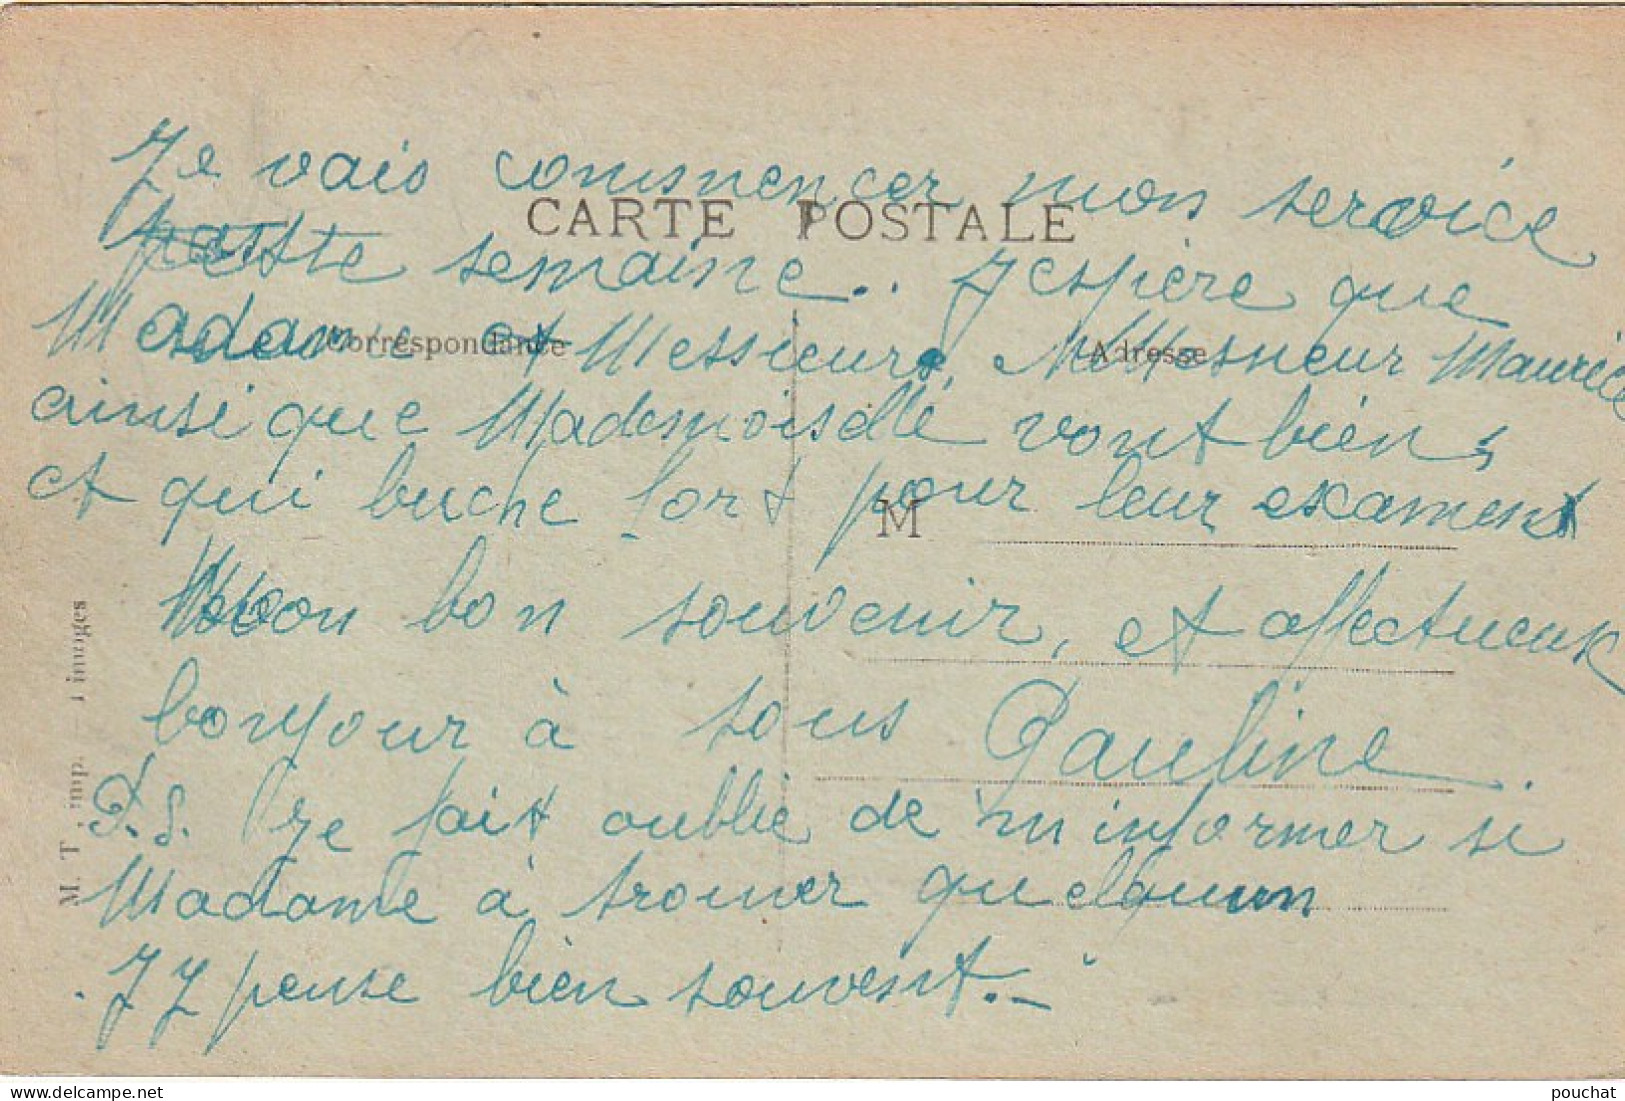 Je vais commencer mon service
CARTE POSTALE
cette semaine.. J espère que
Correspondance
Adresse
Madame et Messieurs, Monsieur Maurice
ainsi que Mademoiselle vont bien,
et qui buche fort pour leur examen
M
Mon bon souvenir, et affectueux
bonjour à tous Pauline.
P.S. Je fait oublié de m informer si
Madame à trouver quelquun
J y pense bien souvent.-
M. T. imp. - Limoges
pouchat